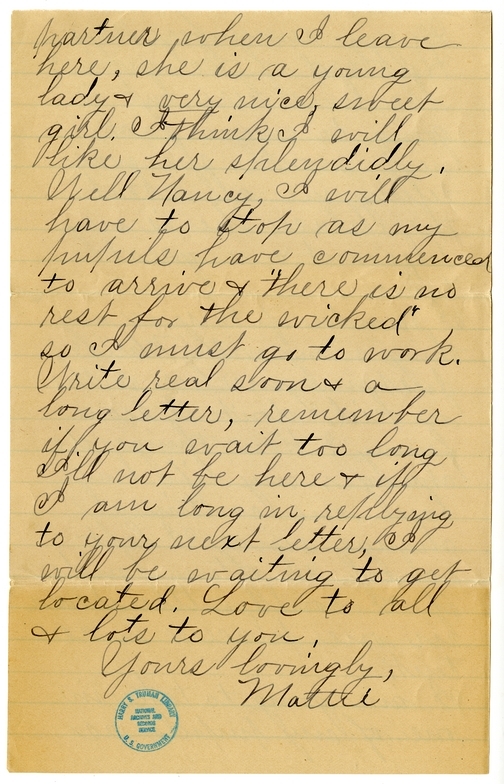 partner when I leave
here, she is a young
lady & very nice, sweet
girl. I think I will
like her splendidly.
Well Nancy, I will
have to stop as my
pupils have commenced
to arrive & "there is no
rest for the wicked",
so I must go to work.
Write real soon & a
long letter, remember
if you wait too long
I'll not be here & if
I am long in replying
to your next letter, I
will be waiting to get
located. Love to all
& lots to you,
Yours lovingly,
Mattie
HARRY S. TRUMAN LIBRARY
NATIONAL
ARCHIVES AND
RECORDS
SERVICE
U. S. GOVERNMENT